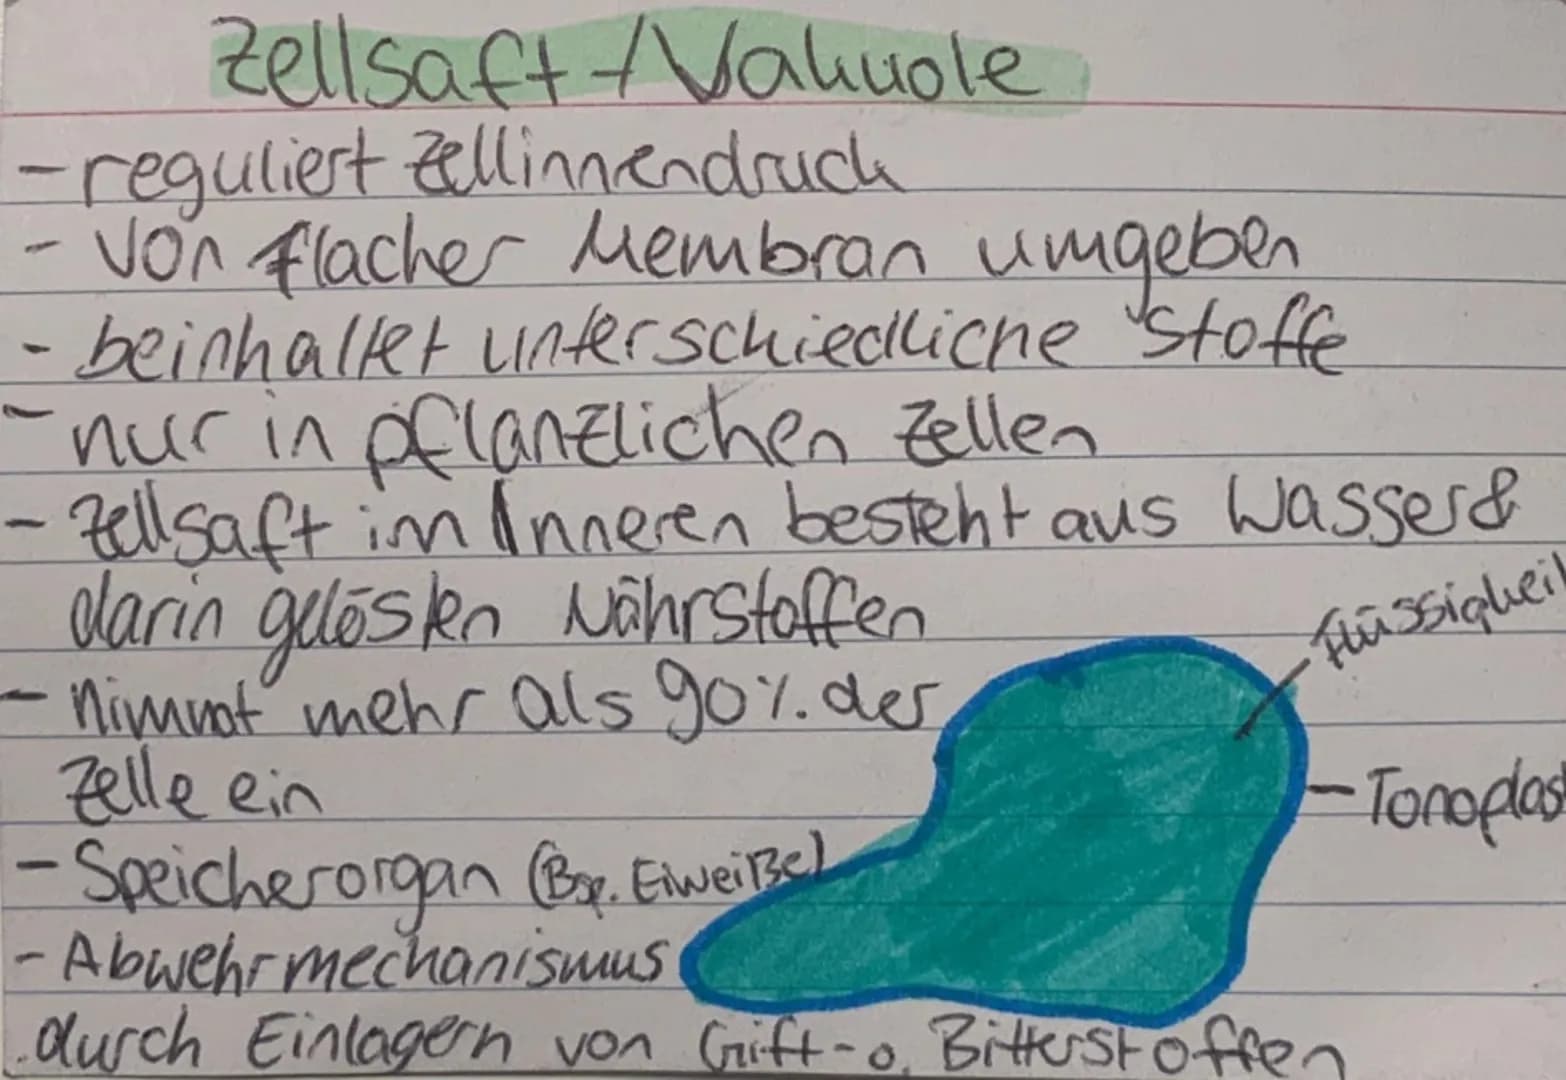 Zellsaft-/Vakuole
- reguliert Zellinnendruck
- von flacher Membran umgeben
- beinhaltet unterschiedliche Stoffe
- nur in pflanzlichen Zellen
- Zellsaft im Inneren besteht aus Wasser &
darin gelösten Nährstoffen
- nimmt mehr als 90%. der
Zelle ein
Flüssigkeit
- Tonoplast
- Speicherorgan (Bsp. Eiweiße)
- Abwehrmechanismus
durch Einlagern von Gift- o. Bitterstoffen